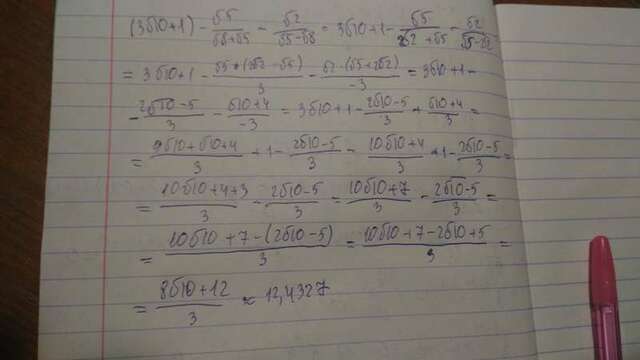 (3√10+1) - √5/(√8+√5) - √2/(√5-√8) = 3√10+1 - √5/(2√2+√5) - √2/(√5-2√2)
= 3√10+1 - √5*(2√2-√5)/3 - √2·(√5+2√2)/-3 = 3√10+1-
- (2√10-5)/3 - (√10+4)/-3 = 3√10+1 - (2√10-5)/3 + (√10+4)/3 =
= (9√10+√10+4)/3 +1 - (2√10-5)/3 = (10√10+4)/3 +1 - (2√10-5)/3 =
= (10√10+4+3)/3 - (2√10-5)/3 = (10√10+7)/3 - (2√10-5)/3 =
= (10√10+7-(2√10-5))/3 = (10√10+7-2√10+5)/3 =
= (8√10+12)/3 ≈ 12,4327